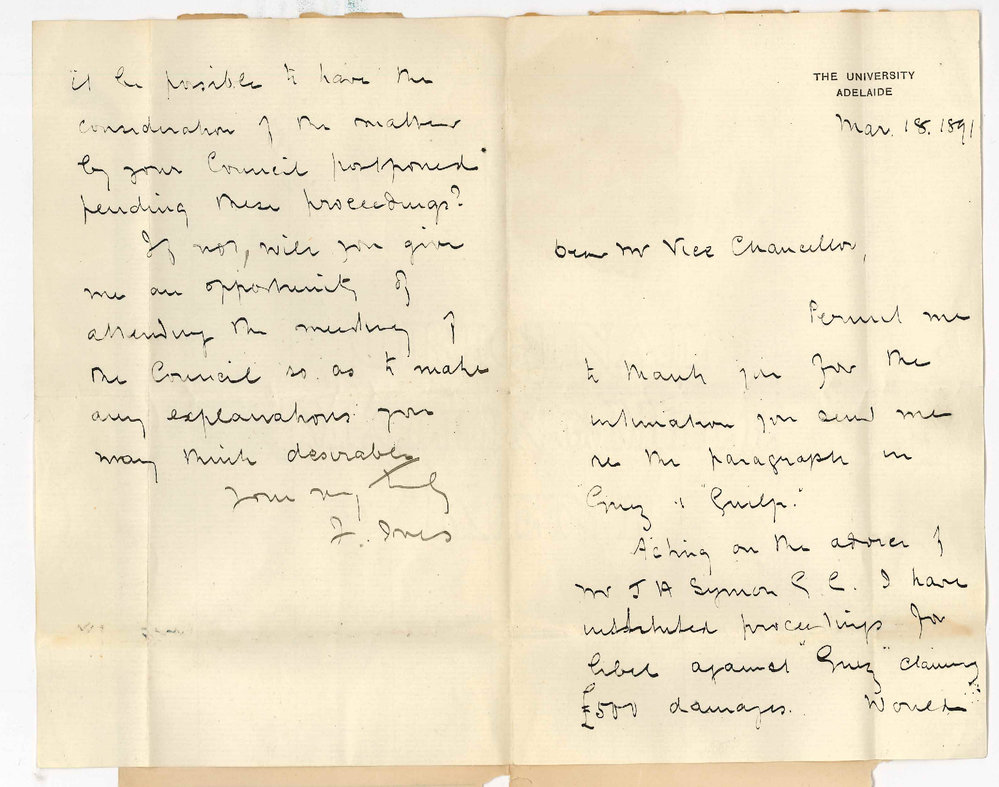 THE UNIVERSITY
ADELAIDE
Mar. 18. 1891
Dear Mr Vice Chancellor,
Permit me
to thank you for the
intimation you send me
re the paragraph in
"Quiz &
Acting on the advice of
Mr J H Symon Q. C. I have
instituted proceedings for
libel against "Quiz" claiming
£500 damages. Would
it be possible to have the
consideration of the matter
by your Council postponed
pending these proceedings?
If not, will you give
me an opportunity of
attending the meeting of
the Council so as to make
any explanations you
may think desirable
Yours very truly
J. Ives